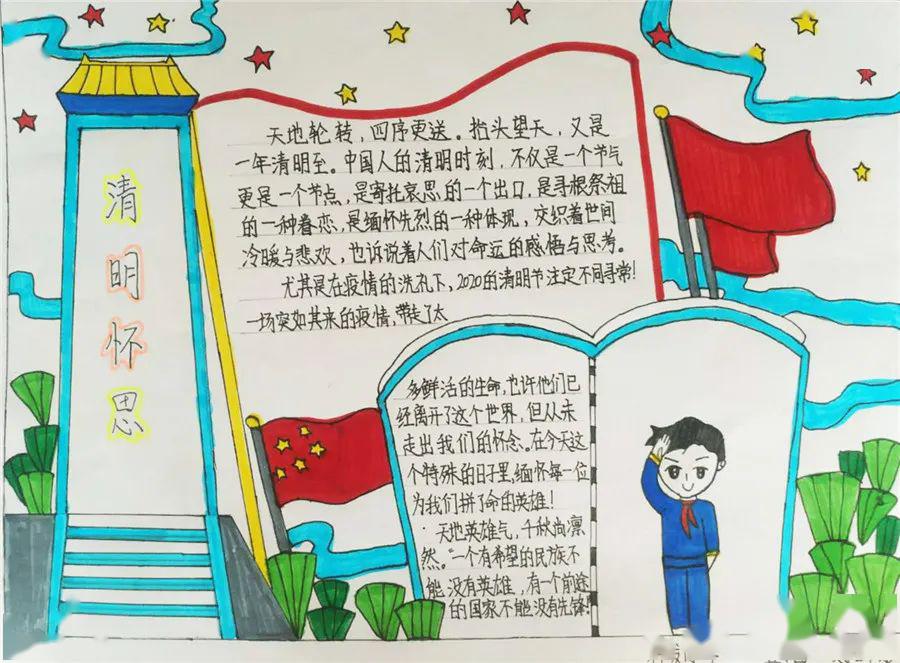 清明怀思
天地轮转，四序更送。抬头望天，又是
一年清明至。中国人的清明时刻，不仅是一个节气
更是一个节点，是寄托哀思的一个出口，是寻根祭祖
的一种眷恋，是缅怀先烈的一种体现，交织着世间
冷暖与悲欢，也诉说着人们对命运的感悟与思考。
尤其是在疫情的洗礼下，2020的清明节注定不同寻常！
一场突如其来的疫情，带走了太
多鲜活的生命，也许他们已
经离开了这个世界，但从未
走出我们的怀念。在今天这
个特殊的日子里，缅怀每一位
为我们拼了命的英雄！
天地英雄气，千秋尚凛
然。"一个有希望的民族不
能没有英雄，有一个前途
的国家不能没有先锋